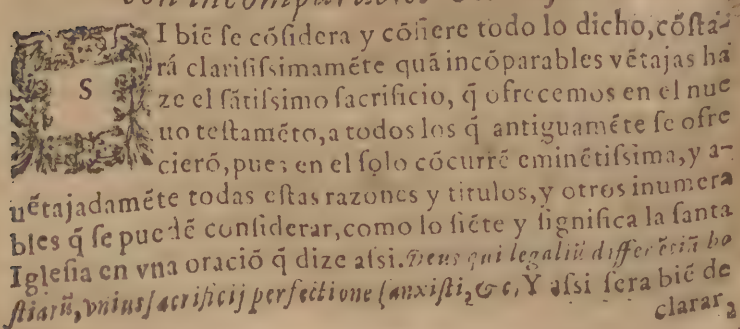 SI biẽ se cõsidera y cõfiere todo lo dicho, cõsta-
rá clarissimamẽte quã incõparables vẽtajas ha
ze el sãtissimo sacrificio, q̃ ofrecemos en el nue
uo testamẽto, a todos los q̃ antiguamẽte se ofre
cierõ, pues en el solo cõcurrẽ eminẽtissima, y a-
uẽtajadamẽte todas estas razones y titulos, y otros inumera
bles q̃ se puedẽ considerar, como lo siẽte y significa la santa
Iglesia en vna oraciõ q̃ dize assi. Deus qui legaliũ differẽtiã ho
stiarũ, vnius sacrificij perfectione sanxisti, &c. Y assi sera biẽ de
clarar,